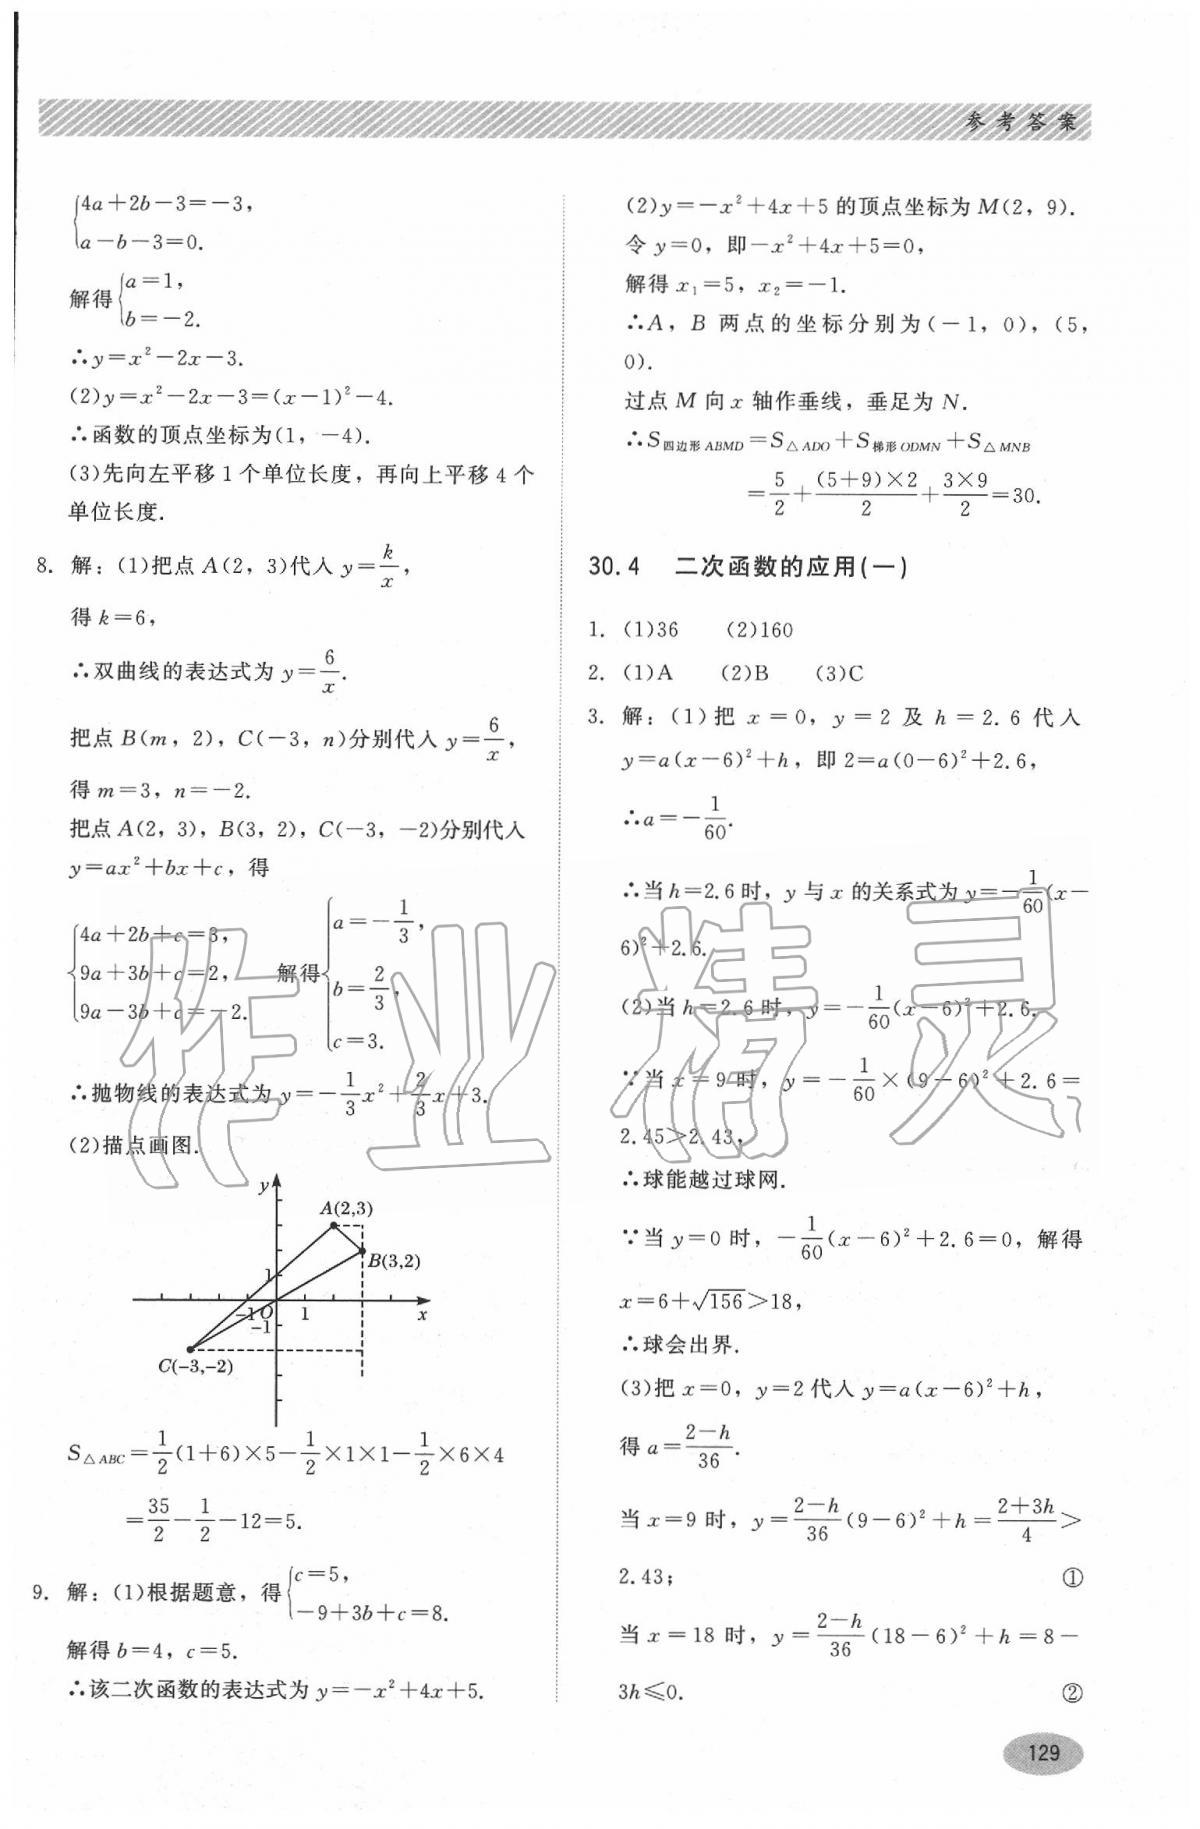 参考答案
{4a+2b-3=-3,
a-b-3=0.
解得{a=1,
b=-2.
∴y=x²-2x-3.
(2)y=x²-2x-3=(x-1)²-4.
∴函数的顶点坐标为(1，-4).
(3)先向左平移1个单位长度，再向上平移4个
单位长度.
8. 解：(1)把点A(2，3)代入y=k/x，
得k=6，
∴双曲线的表达式为y=6/x.
把点B(m，2)，C(-3，n)分别代入y=6/x，
得m=3，n=-2.
把点A(2，3)，B(3，2)，C(-3，-2)分别代入
y=ax²+bx+c，得
{4a+2b+c=3，
9a+3b+c=2，
9a-3b+c=-2.
解得{a=-1/3，
b=2/3，
c=3.
∴抛物线的表达式为y=-1/3x²+2/3x+3.
(2)描点画图.
y
A(2,3)
B(3,2)
1
-1 O 1 x
-1
C(-3,-2)
S△ABC=1/2(1+6)×5-1/2×1×1-1/2×6×4
=35/2-1/2-12=5.
9. 解：(1)根据题意，得{c=5，
-9+3b+c=8.
解得b=4，c=5.
∴该二次函数的表达式为y=-x²+4x+5.
(2)y=-x²+4x+5的顶点坐标为M(2，9).
令y=0，即-x²+4x+5=0，
解得x₁=5，x₂=-1.
∴A，B两点的坐标分别为(-1，0)，(5，
0).
过点M向x轴作垂线，垂足为N.
∴S四边形ABMD=S△ADO+S梯形ODMN+S△MNB
=5/2+(5+9)×2/2+3×9/2=30.
30.4 二次函数的应用(一)
1. (1)36 (2)160
2. (1)A (2)B (3)C
3. 解：(1)把x=0，y=2及h=2.6代入
y=a(x-6)²+h，即2=a(0-6)²+2.6，
∴a=-1/60.
∴当h=2.6时，y与x的关系式为y=-1/60(x-
6)²+2.6.
(2)当h=2.6时，y=-1/60(x-6)²+2.6.
∵当x=9时，y=-1/60×(9-6)²+2.6=
2.45>2.43，
∴球能越过球网.
∵当y=0时，-1/60(x-6)²+2.6=0，解得
x=6+√156>18，
∴球会出界.
(3)把x=0，y=2代入y=a(x-6)²+h，
得a=2-h/36.
当x=9时，y=2-h/36(9-6)²+h=2+3h/4>
2.43； ①
当x=18时，y=2-h/36(18-6)²+h=8-
3h≤0. ②
129
作业精灵